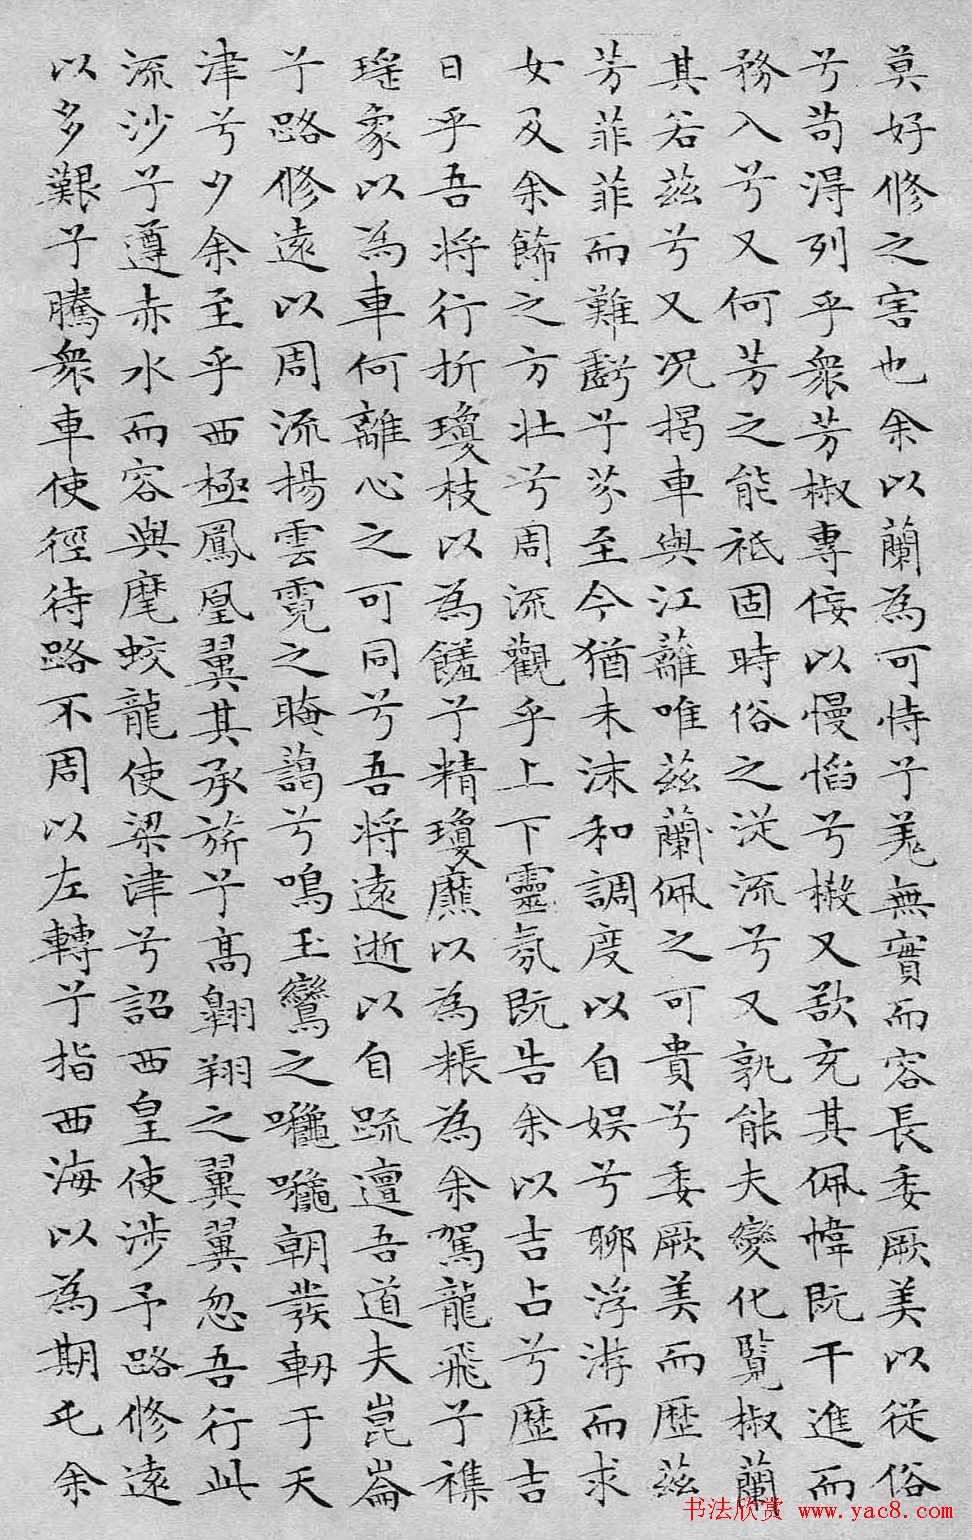 莫好修之害也余以蘭為可恃兮羌無實而容長委厥美以從俗
兮苟得列乎衆芳椒專佞以慢慆兮樧又欲充其佩幃既干進而
務入兮又何芳之能祗固時俗之從流兮又孰能夫變化覽椒蘭
其若茲兮又況揭車與江蘺唯茲蘭佩之可貴兮委厥美而歷茲
芳菲菲而難虧兮芬至今猶未沬和調度以自娛兮聊浮游而求
女及余飾之方壯兮周流觀乎上下靈氛既告余以吉占兮歷吉
日乎吾將行折瓊枝以為饈兮精瓊爢以為粻為余駕龍飛兮襍
瑤象以為車何離心之可同兮吾將遠逝以自疏邅吾道夫崑崙
兮路修遠以周流揚雲霓之晻藹兮鳴玉鸞之朝發軔于天
津兮夕余至乎西極鳳凰翼其承旂兮高翱翔之翼翼忽吾行此
流沙兮遵赤水而容與麾蛟龍使梁津兮詔西皇使涉予路修遠
以多艱兮騰衆車使徑待路不周以左轉兮指西海以為期屯余
书法欣赏 www.yac8.com